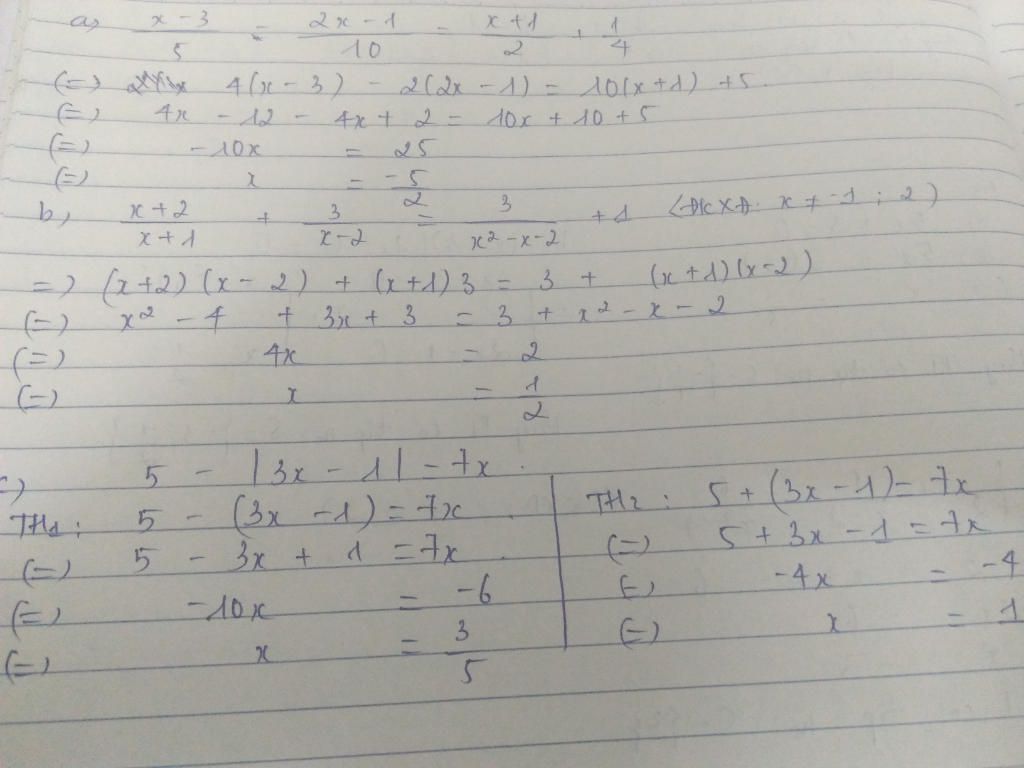 a, (x - 3)/5 - (2x - 1)/10 = (x + 1)/2 + 1/4
(=) 4(x - 3) - 2(2x - 1) = 10(x + 1) + 5
(=) 4x - 12 - 4x + 2 = 10x + 10 + 5
(=) -10x = 25
(=) x = -5/2
b, (x + 2)/(x + 1) + 3/(x - 2) = 3/(x² - x - 2) + 1 (ĐKXĐ: x ≠ -1 ; 2)
=) (x + 2)(x - 2) + (x + 1)3 = 3 + (x + 1)(x - 2)
(=) x² - 4 + 3x + 3 = 3 + x² - x - 2
(=) 4x = 2
(=) x = 1/2
5 - |3x - 1| = 7x
TH1: 5 - (3x - 1) = 7x
(=) 5 - 3x + 1 = 7x
(=) -10x = -6
(=) x = 3/5
TH2: 5 + (3x - 1) = 7x
(=) 5 + 3x - 1 = 7x
(=) -4x = -4
(=) x = 1